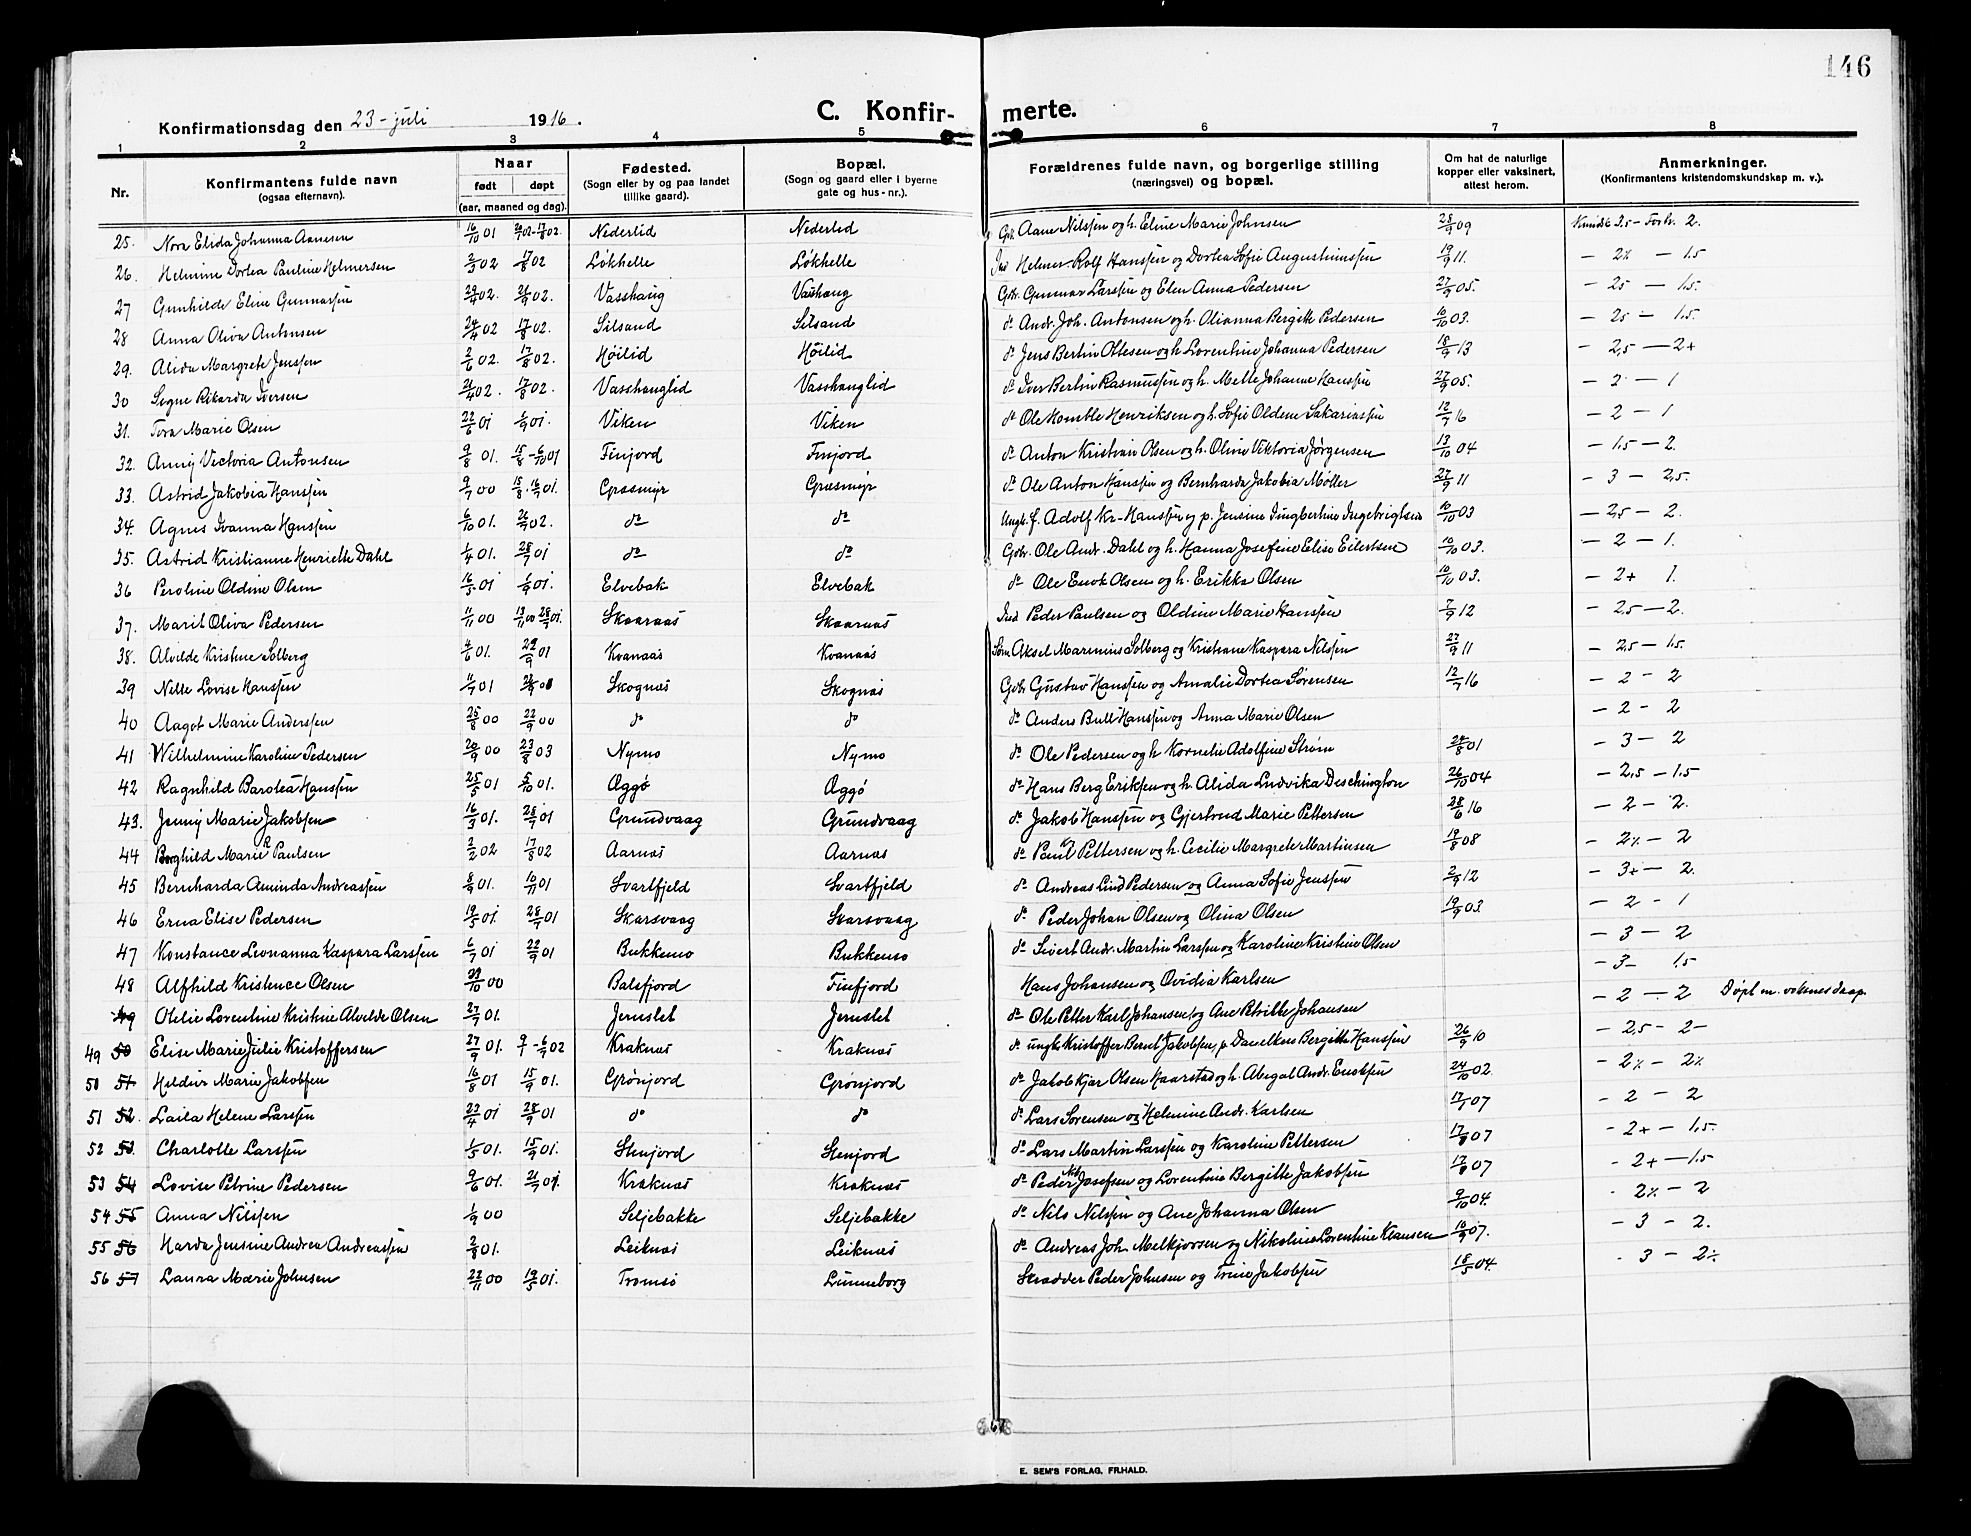 146
C. Konfirmerte.
Konfirmationsdag den 23-juli 1916.
1 2 3 4 5 6 7 8
Nr. Konfirmantens fulde navn (ogsaa efternavn). Naar født døpt (aar, maaned og dag). Fødested. (Sogn eller by og paa landet tillike gaard). Bopæl. (Sogn og gaard eller i byerne gate og hus-nr.). Forældrenes fulde navn, og borgerlige stilling (næringsvei) og bopæl. Om hat de naturlige kopper eller vaksinert, attest herom. Anmerkninger. (Konfirmantens kristendomskundskap m. v.).
25. Nora Elida Johanna Aanesen 16/10 01 Nederlid Nederlid Gbr. Aane Nilssen og h. Eline Marie Johnsen 28/9 09 Kundsk 2,5 - Forh. 2.
26. Helmine Dortea Pauline Helmersen 2/3 02 17/8 02 Løkhelle Løkhelle Ind Helmer Rolf Hanssen og Dortea Sofie Augustinussen 19/9 11. - 2% - 1.5
27 Gunhilde Eline Gunnarsen 29/4 02. 21/9 02. Vasshaug Vasshaug Gbr. Gunnar Larssen og Elen Anna Pedersen 27/9 05. - 25 - 1.5.
28 Anna Oliva Antonsen 24/4 02 17/8 02. Silsand Silsand do Andr. Joh. Antonsen og h. Olianna Bergitte Pedersen 10/10 03. - 25 - 1.5.
29. Alida Margrete Jenssen 2/6 02. 17/8 02. Høilid Høilid do Jens Bertin Ottesen og h. Lorentine Johanna Pedersen 18/9 13 - 2,5 - 2+
30 Signe Rikarda Iversen 21/4 02. 17/8 02. Vasshauglid Vasshauglid do Iver Bertin Rasmussen og h. Mette Johanne Hanssen 27/9 05. - 2 - 1
31. Tora Marie Olsen 22/6 01 1/9 01. Viken Viken do Ole Homble Henriksen og h. Sofie Oldine Sakariassen 12/7 16 - 2 - 1
32. Anny Victoria Antonsen 9/8 01. 15/8 - 6/10 01 Finjord Finjord do Anton Kristian Olsen og h. Oline Viktoria Jørgensen 13/10 04 - 1.5 - 2.
33. Astrid Jakobia Hanssen 9/7 00 Græsmyr Græsmyr do Ole Anton Hanssen og Bernharda Jakobia Møller 27/9 11 - 3 - 2,5.
34. Agnes Ivanna Hanssen 6/10 01. 26/7 02. do do Ungk. f. Adolf Kr. Hanssen og p. Jensine Ingbertine Ingebrigtsen 10/10 03 - 2,5 - 2.
35. Astrid Kristianne Henriette Dahl 1/4 01. 28/7 01 do do Gbr. Ole Andr. Dahl og h. Hanna Josefine Elise Eilertsen 10/10 03. - 2 - 1.
36 Peroline Oldine Olsen 16/5 01 1/9 01. Elvebak Elvebak do Ole Enok Olsen og h. Erikka Olsen 10/10 03. - 2+ 1.
37. Marit Oliva Pedersen 11/11 00 13/11 00 28/7 01. Skaaraas Skaaraas Ind Peder Paulsen og Oldine Marie Hanssen 7/9 12 - 2,5 - 2.
38. Alvilde Kristine Solberg 4/6 01. 22/9 01 Kvanaas Kvanaas Aksel Marinius Solberg og Kristiane Kaspara Nilsen 27/9 11 - 2,5 - 1.5.
39 Nelle Lovise Hanssen 11/7 01 Skognæs Skognæs Gbr Gustav Hanssen og Amalie Dortea Sørensen 12/7 16 - 2 - 2
40 Aagot Marie Anderssen 25/8 00 22/9 00 do do do Anders Bull Hanssen og Anna Marie Olsen - 2 - 2
41 Wilhelmine Karoline Pedersen 20/9 00 23/8 03 Nymo Nymo do Ole Pedersen og h Kornelie Adolfine Strøm 24/8 01 - 3 - 2
42 Ragnhild Barolea Hanssen 25/5 01 5/10 01. Æggø Æggø do Hans Berg Eriksen og h. Alida Ludvika Deschington 26/10 04 - 2,5 - 1,5
43. Jenny Marie Jakobsen 16/3 01. 28/7 01 Grundvaag Grundvaag do Jakob Hanssen og Gjertrud Marie Pettersen 28/6 16 - 2 - 2.
44 Borghild Marie R Paulsen 2/2 02 17/8 02 Aarnes Aarnes do Paul Pettersen og h. Cecilie Margrete Martinsen 19/8 08 - 2% - 2
45 Bernharda Aminda Andreassen 8/9 01. 10/11 01 Svartfjeld Svartfjeld do Andreas Lind Pedersen og Anna Sofie Jenssen 2/9 12 - 3+ - 2.
46 Erna Elise Pedersen 19/5 01. 28/7 01 Skarsvaag Skarsvaag do Peder Johan Olsen og Olina Olsen 19/9 03. - 2 - 1
47 Konstance Leonanna Kaspara Larssen 6/7 01 22/9 01 Bukkemo Bukkemo do Sivert Andr. Martin Larssen og Karoline Kristine Olsen - 3 - 2
48 Alfhild Kristence Olsen 29/10 00 Balsfjord Finfjord Hans Johansen og Ovidia Karlsen - 3 - 1.5
49 Otelie Lorentine Kristine Alvelde Olsen 27/7 01. Jernslet Jernslet do Ole Petter Karl Johansen og Ane Petrikke Johansen - 2 - 2 Døpt m. voksnes daap.
49 50 Elise Marie Julie Kristoffersen 27/9 01. Kraknæs Kraknæs do ungk. Kristoffer Bernt Jakobsen, p. Danelkoa Bergitte Hanssen 26/9 10 - 2,5 - 2 -
50 51 Heldur Marie Jakobsen 16/8 01 15/9 01. Grønjord Grønjord do Jakob Kjær Olsen Kaarstad og h. Abigal Andr. Enoksen 24/10 02. - 2% - 2%
51 52. Laila Helene Larssen 22/4 01 28/9 01 do do do Lars Sørensen og Helmine Andr. Karlsen 07 - 2 - 2
52 53. Charlotte Larssen 1/5 01. 15/9 01. Stenjord Stenjord do Lars Martin Larssen og Karoline Pettersen 17/8 07 - 2+ - 1,5.
53 54 Lovise Petrine Pedersen 9/6 01. 21/7 01. Kraknæs Kraknæs do Peder Nik Josefsen og Lorentine Bergitte Jakobsen 17/8 07 - 2+ - 1.5
54 55 Anna Nilssen 1/9 00 Seljebakke Seljebakke do Nils Nilssen og Ane Johanna Olsen 9/10 04. - 2% - 2
55 56 Harda Jensine Andrea Andreassen 2/8 01. Leiknes Leiknes do Andreas Joh. Melkjorsen og Nikoline Lorentine Klausen 10/9 07. - 3 - 2.
56 57 Laura Marie Johnsen 22/11 00 19/5 01. Tromsø Lunneborg Skrædder Peder Johnsen og Trine Jakobsen 18/5 04. - 3 - 2%
E. SEM'S FORLAG, FR.HALD.